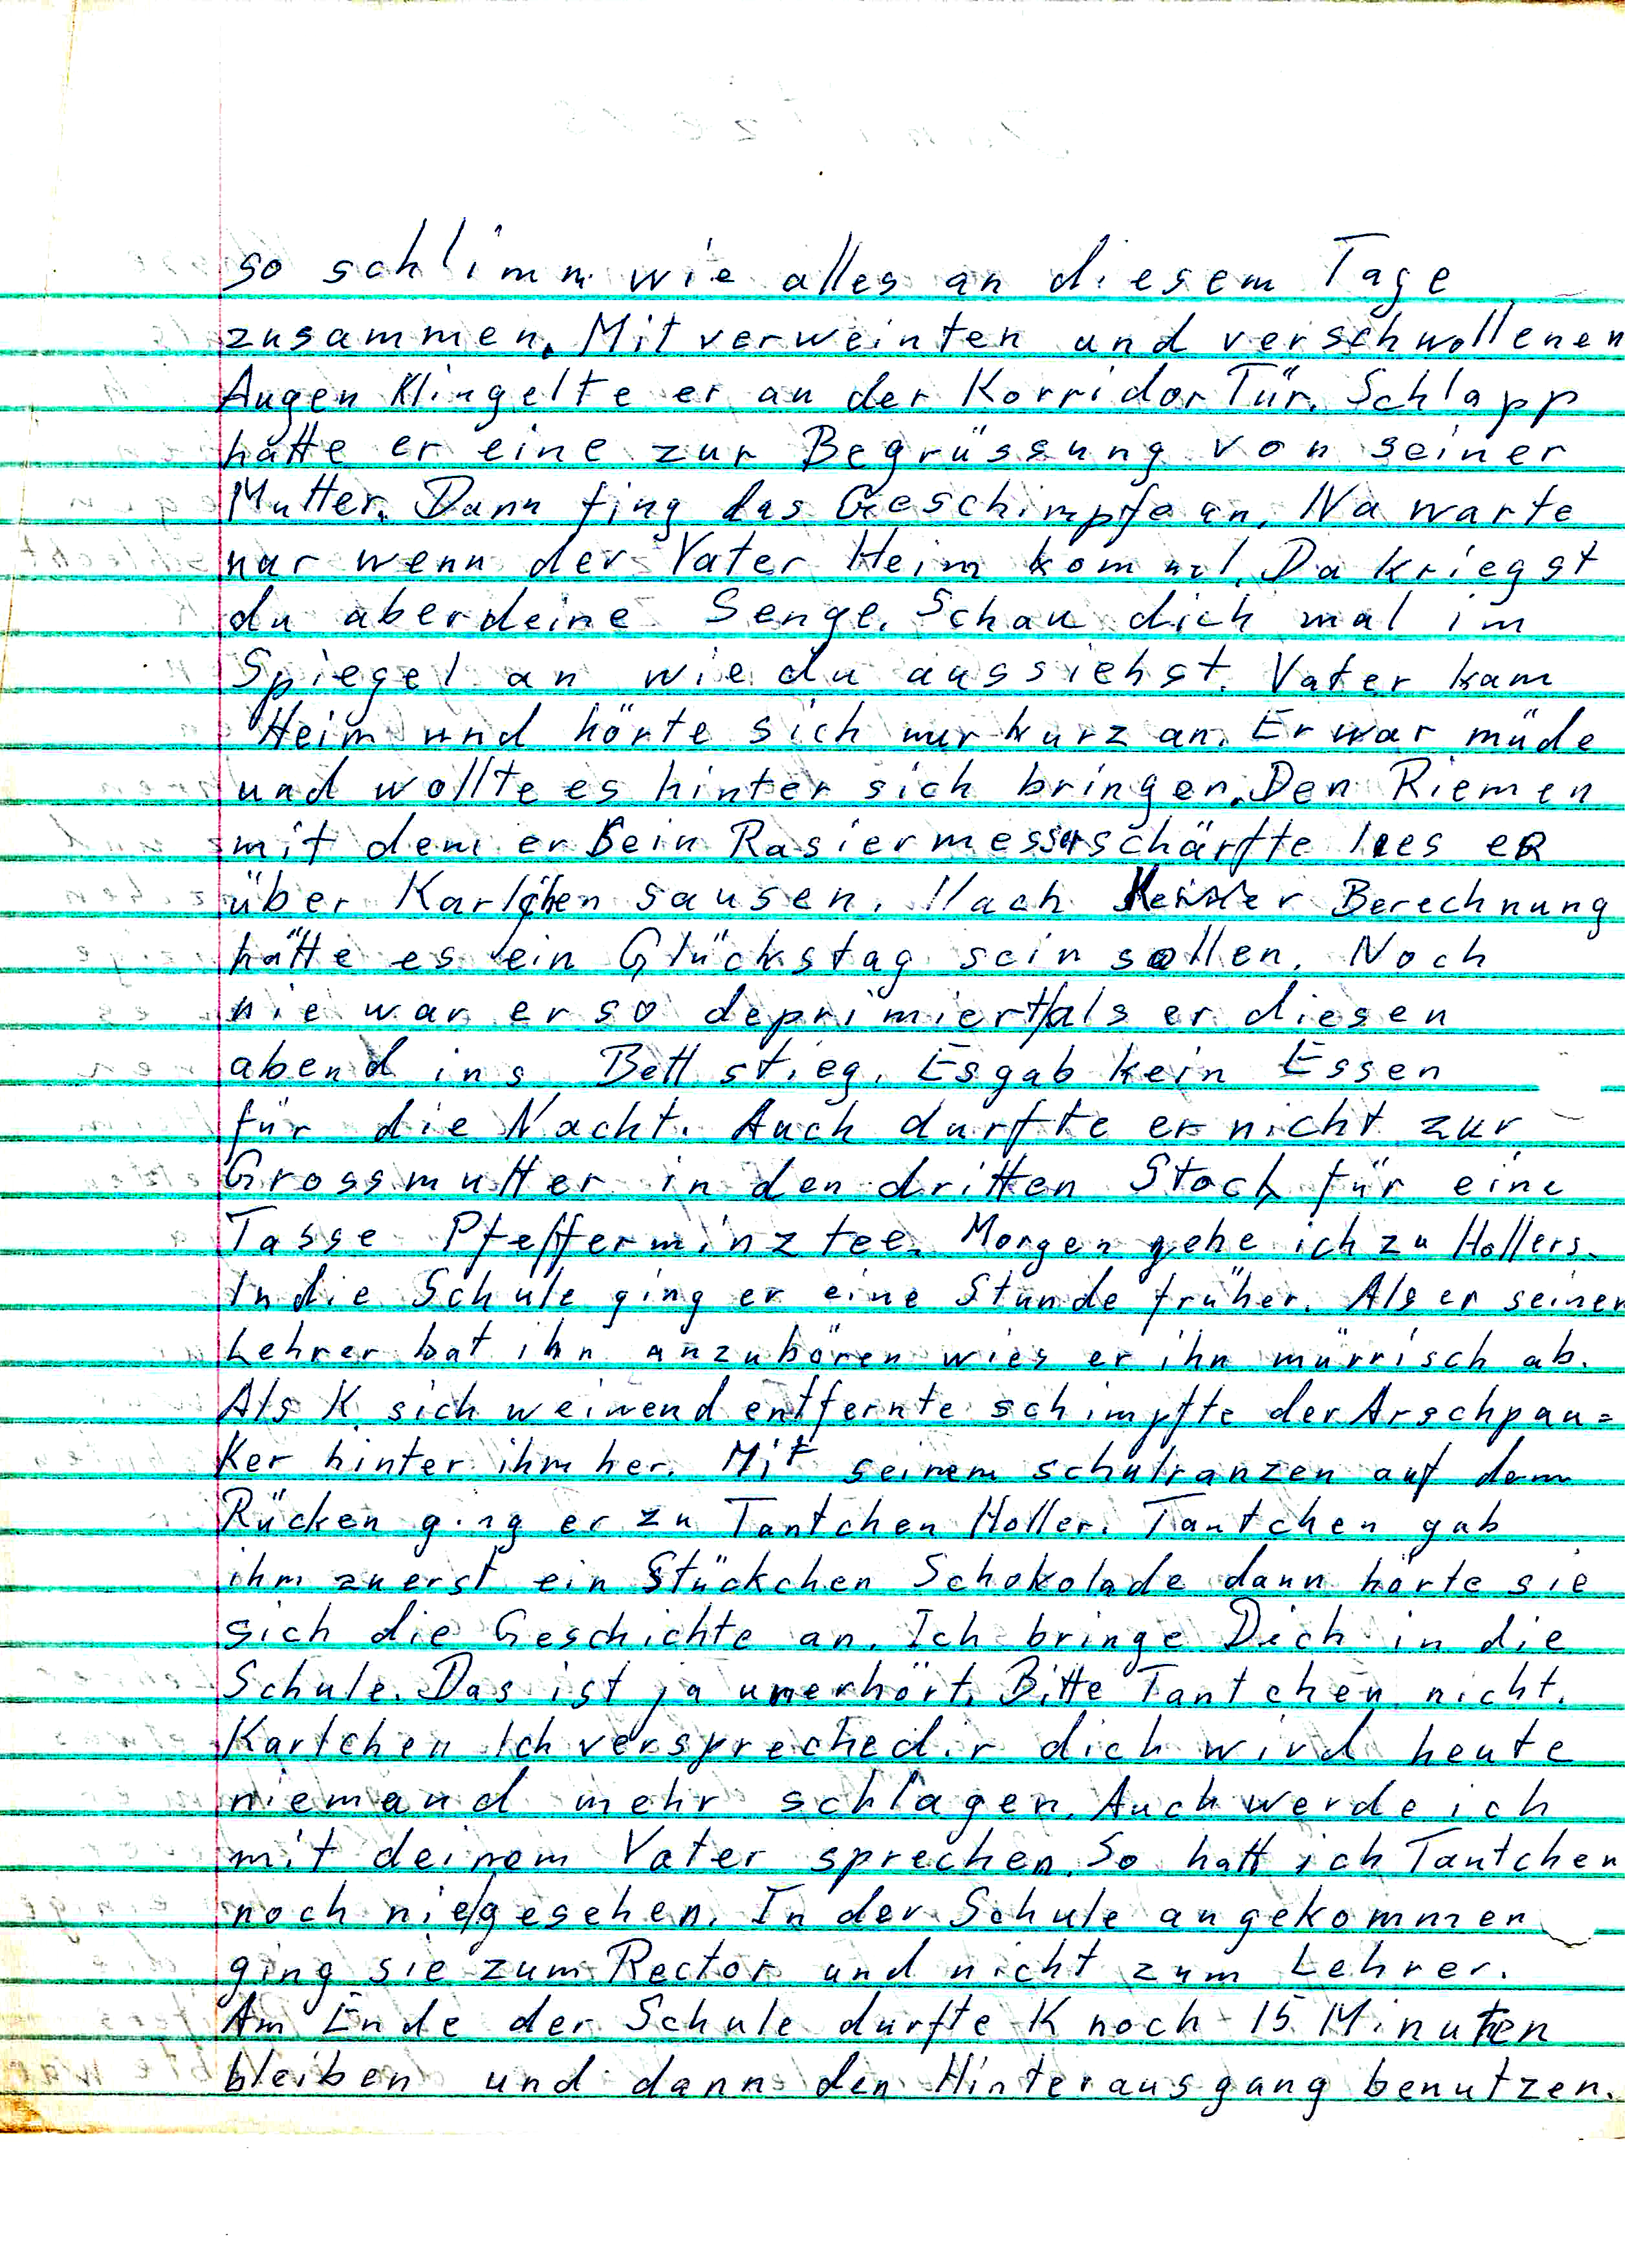 so schlimm wie alles an diesem Tage
zusammen. Mit verweinten und verschwollenen
Augen Klingelte er an der Korridor Tür. Schlapp
hatte er eine zur Begrüssung von seiner
Mutter. Dann fing das Geschimpfe an. Na warte
nur wenn der Vater Heim kommt. Da kriegst
du aber deine Senge. Schau dich mal im
Spiegel an wie du aussiehst. Vater kam
Heim und hörte sich nur kurz an. Er war müde
und wollte es hinter sich bringen. Den Riemen
mit dem er sein Rasiermesser schärfte lies er
über Karlchen sausen. Nach Berechnung
hätte es ein Glückstag sein sollen. Noch
nie war er so deprimiert/als er diesen
abend ins Bett stieg. Es gab kein Essen
für die Nacht. Auch durfte er nicht zur
Grossmutter in den dritten Stock für eine
Tasse Pfefferminztee. Morgen gehe ich zu Hollers.
In die Schule ging er eine Stunde früher. Als er seinen
Lehrer bat ihn anzuhören wies er ihn mürrisch ab.
Als K sich weinend entfernte schimpfte der Arschpau=
Ker hinter ihm her. Mit seinem schulranzen auf dem
Rücken ging er zu Tantchen Holler. Tantchen gab
ihm zuerst ein Stückchen Schokolade dann hörte sie
sich die Geschichte an. Ich bringe Dich in die
Schule. Das ist ja unerhört. Bitte Tantchen nicht.
Karlchen Ich verspreche dir dich wird heute
niemand mehr schlagen. Auch werde ich
mit deinem Vater sprechen. So hatt ich Tantchen
noch nie/gesehen. In der Schule angekommen
ging sie zum Rector und nicht zum Lehrer.
Am Ende der Schule durfte K noch 15 Minuten
bleiben und dann den Hinterausgang benutzen.